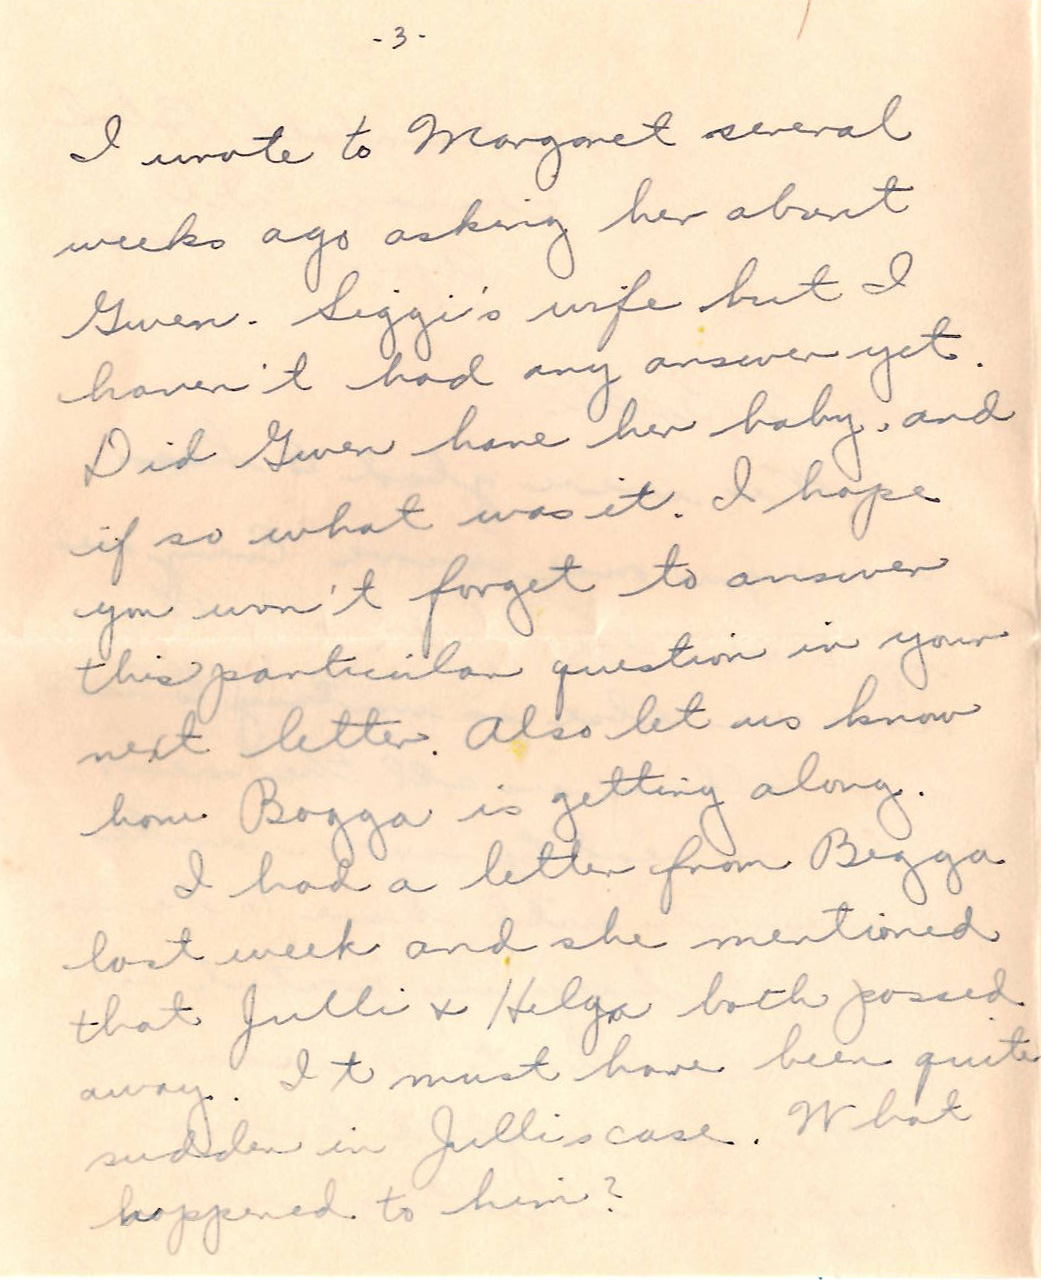 -3-
I wrote to Margaret several
weeks ago asking her about
Gwen. Siggi's wife but I
haven't had any answer yet.
Did Gwen have her baby, and
if so what was it. I hope
you won't forget to answer
this particular question in your
next letter. Also let us know
how Bogga is getting along.
I had a letter from Begga
last week and she mentioned
that Julli & Helga both passed
away. It must have been quite
sudden in Jullis case. What
happened to him?